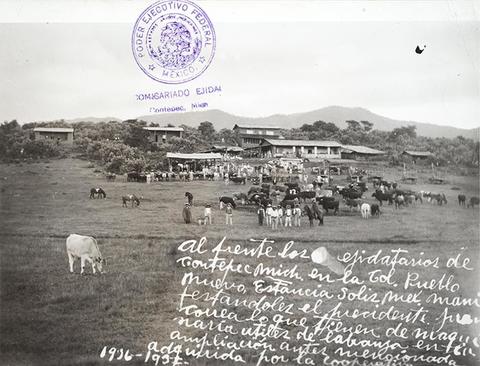 PODER EJECUTIVO FEDERAL
MEXICO.
COMISARIADO EJIDAL
Contepec, Mich
Al frente los ejidatarios de
Contepec Mich en la Col. Pueblo
Nuevo, Estancia Solis, Mex, mani
festandoles el precidente
lo que tienen de maqui
naria utiles de labranza en
ampliacion antes mencionada
adquirida por la cooperativa
1936-1937